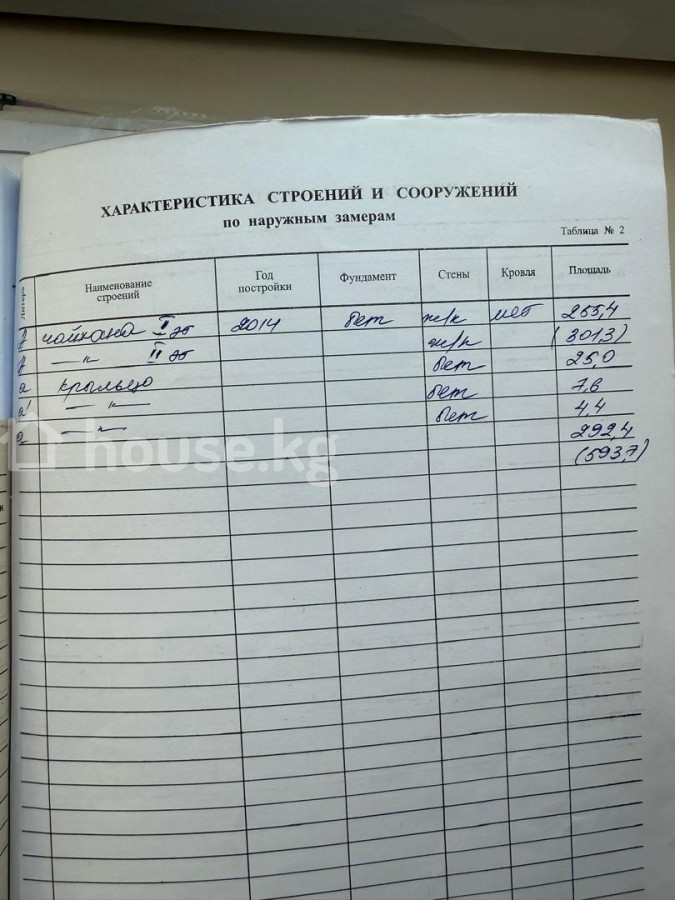 ХАРАКТЕРИСТИКА СТРОЕНИЙ И СООРУЖЕНИЙ
по наружным замерам
Таблица № 2
Литера Наименование строений Год постройки Фундамент Стены Кровля Площадь
чайхана I эт 2014 бет ж/к мет 255,4
— " — II эт ж/к (301,3)
а крыльцо бет 25,0
а' — " — бет 7,6
— " — бет 4,4
292,4
(593,7)
house.kg